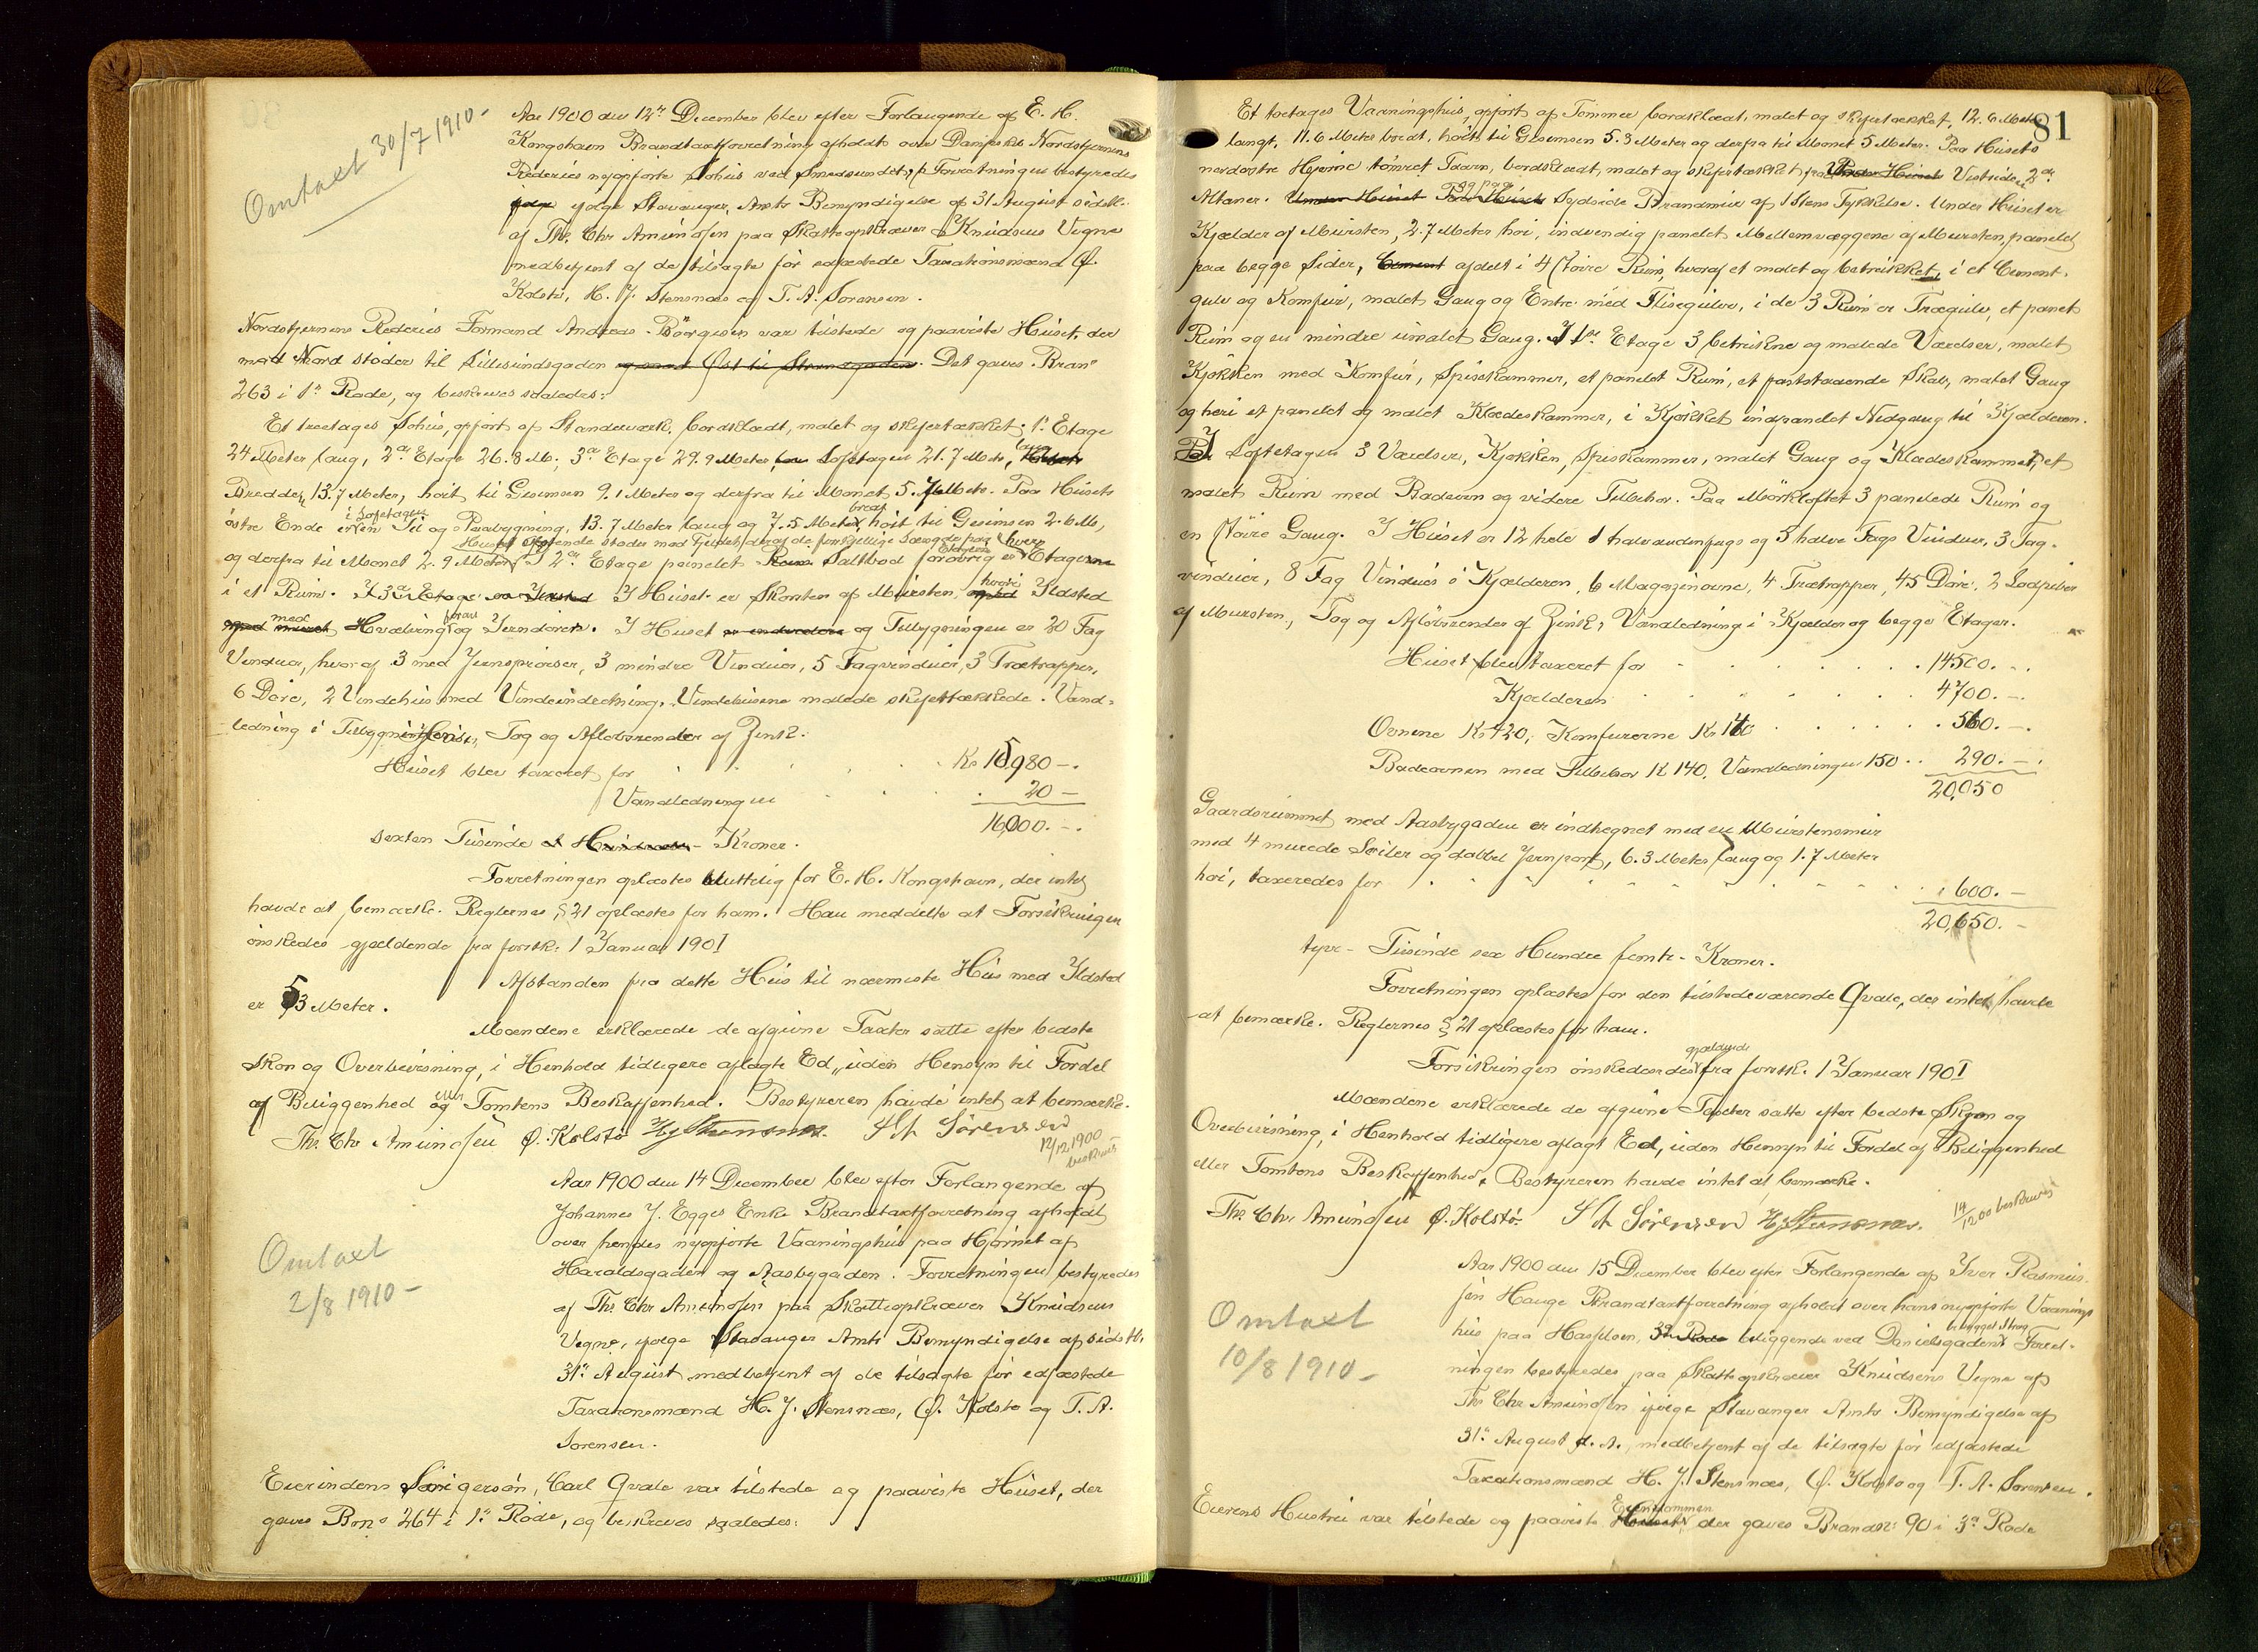 Omtaxt 30/7 1910-
Aar 1900 den 12te December blev efter Forlangende af E. H.
Kongshavn Brandtaxtforretning afholdt over Dampskbs Nordstjernens
Rederies nyopførte Søhus ved Smedasundet. Forretningen bestyredes
ifølge Stavanger Amts Bemyndigelse af 31 August sidstl.
af Ths. Chr Amundsen paa Skatteopkræver Knudsens Vegne
medbetjent af de tilsagte før edfæstede Taxationsmænd Ø.
Kolstø, H. J. Stensnæs og T. A. Sørensen.
Nordstjernens Rederies Formand Andreas Børgesen var tilstede og paaviste Huset, der
mod Nord støder til Lillesundsgaden og mod Øst til Strandgaden. Det gaves Bran°
263 i 1ste Rode, og beskrives saaledes:
Et treetages Søhus, opført af Standerværk, bordklædt, malet og skifertækket. 1ste Etage
24 Meter lang, 2den Etage 26.8 M., 3die Etage 29.9 Meter, Loftetagen 21.7 Meter lang,
Bredden 13.7 Meter, høit til Gesimsen 9.1 Meter og derfra til Mønet 5.7 Meter. Paa Husets
østre Ende er i Loftetagen en Til og Paabygning, 13.7 Meter lang og 7.5 Meter bred, høit til Gesimsen 2.6 M,
Husets Østende støder mod Fjeldet deraf de forskjellige Længde paa Etagerne
og derfra til Mønet 2.9 Meter. I 2den Etage panelet Saltbod forøvrig er hver Etage
i et Rum. I Huset er Skorsten af Mursten, hvori Ildsted
med Hvælving foran og Jerndøren. I Huset og Tilbygningen er 20 Fag
Vinduer, hvoraf 3 med Jernsprosser, 3 mindre Vinduer, 5 Fagvinduer, 3 Trætrapper,
6 Døre, 2 Vindehus med Vindeindretning, Vindehusene malede skifertækkede. Vand-
ledning i Tilbygningen, Tag og Afløbsrender af Zink.
Huset blev taxeret for Kr 15,980 -.
Vandledningen 20 -
16,000. -.
sexten Tusinde Kroner.
Forretningen oplæstes sluttelig for E. H. Kongshavn, der intet
havde at bemærke. Reglernes § 21 oplæstes for ham. Han meddelte at Forsikringen
ønskedes gjældende fra forstk. 1 Januar 1901
Afstanden fra dette Hus til nærmeste Hus med Ildsted
er 53 Meter.
Mændene erklærede de afgivne Taxter satte efter bedste
Skøn og Overbevisning, i Henhold tidligere aflagte Ed, uden Hensyn til Fordel
af Beliggenhed eller Tomtens Beskaffenhed. Bestyreren havde intet at bemærke.
Ths. Chr Amundsen Ø. Kolstø HJStensnæs. T A Sørensen
12/12 1900 beskrevet
Aar 1900 den 14 December blev efter Forlangende af
Johannes J. Egges Enke Brandtaxtforretning afholdt
over hendes nyopførte Vaaningshus paa Hjørnet af
Haraldsgaden og Aasbygaden. Forretningen bestyredes
af Ths. Chr Amundsen paa Skatteopkræver Knudsens
Vegne, ifølge Stavanger Amts Bemyndigelse af sidstl.
31te August medbetjent af de tilsagte før edfæstede
Taxationsmænd H. J. Stensnæs, Ø. Kolstø og T. A.
Sørensen.
Omtaxt
2/8 1910-
Eierindens Svigersøn, Carl Qvale var tilstede og paaviste Huset, der
gaves Brno 264 i 1ste Rode, og beskrives saaledes:
81
Et toetages Vaaningshus, opført af Tømmer bordklædt, malet og skifertækket, 12.6 Meter
langt, 11.6 Meter bredt, høit til Gesimsen 5.3 Meter og derfra til Mønet 5 Meter. Paa Husets
nordøstre Hjørne tømret Taarn, bordklædt, malet og skifertækket, Vestsiden 2de
Altaner. og paa Sydside Brandmur af 1 Stens Tykkelse. Under Huset er
Kjælder af Mursten, 2.7 Meter høi, indvendig panelet Mellemvæggene af Mursten, panelet
paa begge Sider, afdelt i 4 større Rum, hvoraf et malet og betrukket, i et Cement-
gulv og Komfur, malet Gang og Entre med Flisegulve, i de 3 Rum er Trægulv, et panelt
Rum og en mindre umalet Gang. I 1ste Etage 3 betrukne og malede Værelser, malet
Kjøkken med Komfur, Spisekammer, et panelet Rum, et faststaaende Skab, malet Gang
og heri et panelet og malet Klædeskammer, i Kjøkket indpanelet Nedgang til Kjælderen.
I Loftetagen 3 Værelser, Kjøkken, Spiskammer, malet Gang og Klædeskammer, et
malet Rum med Badeovn og videre Tilbehør. Paa Mørkloftet 3 panelede Rum og
en større Gang. I Huset er 12 hele 1 halvandenfags og 5 halve Fags Vinduer, 3 Tag-
vinduer, 8 Fag Vinduer i Kjælderen, 6 Magazinovne, 4 Trætrapper, 45 Døre, 2 Lodpiber
af Mursten, Tag og Afløbsrender af Zink, Vandledning i Kjælder og begge Etager.
Huset blev taxeret for 14500. -.
Kjælderen 4700. -.
Ovnene Kr 420, Komfurerne Kr 140 560. -.
Badeovnen med Tilbehør Kr 140, Vandledningen 150 290. -.
20,050
Gaardsrummet med Aasbygaden er indhegnet med en Murstensmur
med 4 murede Søiler og dobbel Jernport, 6.3 Meter lang og 1.7 Meter
høi, taxeredes for 600. -
20,650. -
tyve - Tusinde sex Hundre femti - Kroner.
Forretningen oplæstes for den tilstedeværende Qvale, der intet havde
at bemærke. Reglernes § 21 oplæstes for ham.
Forsikringen ønskedes gjældende fra forstk. 1 Januar 1901
Mændene erklærede de afgivne Taxter satte efter bedste Skjøn og
Overbevisning, i Henhold tidligere aflagt Ed, uden Hensyn til Fordel af Beliggenhed
eller Tomtens Beskaffenhed. Bestyreren havde intet at bemærke.
Ths. Chr. Amundsen Ø. Kolstø. T A Sørensen HJStensnæs. 14/12 00 beskrevet
Aar 1900 den 15 December blev efter Forlangende af Iver Rasmus-
sen Hauge Brandtaxtforretning afholdt over hans nyopførte Vaanings
hus paa Hasseløen, 3die Rode beliggende ved Danielsgaden Forret-
ningen bestyredes paa Skatteopkræver Knudsens Vegne af
Ths Chr Amundsen ifølge Stavanger Amts Bemyndigelse af
31te August d. A., medbetjent af de tilsagte før edfæstede
Taxationsmænd H. J. Stensnæs, Ø. Kolstø og T. A. Sørensen.
Omtaxt
10/8 1910-
Eierens Hustru var tilstede og paaviste Eiendommen der gaves Brandnr 90 i 3die Rode